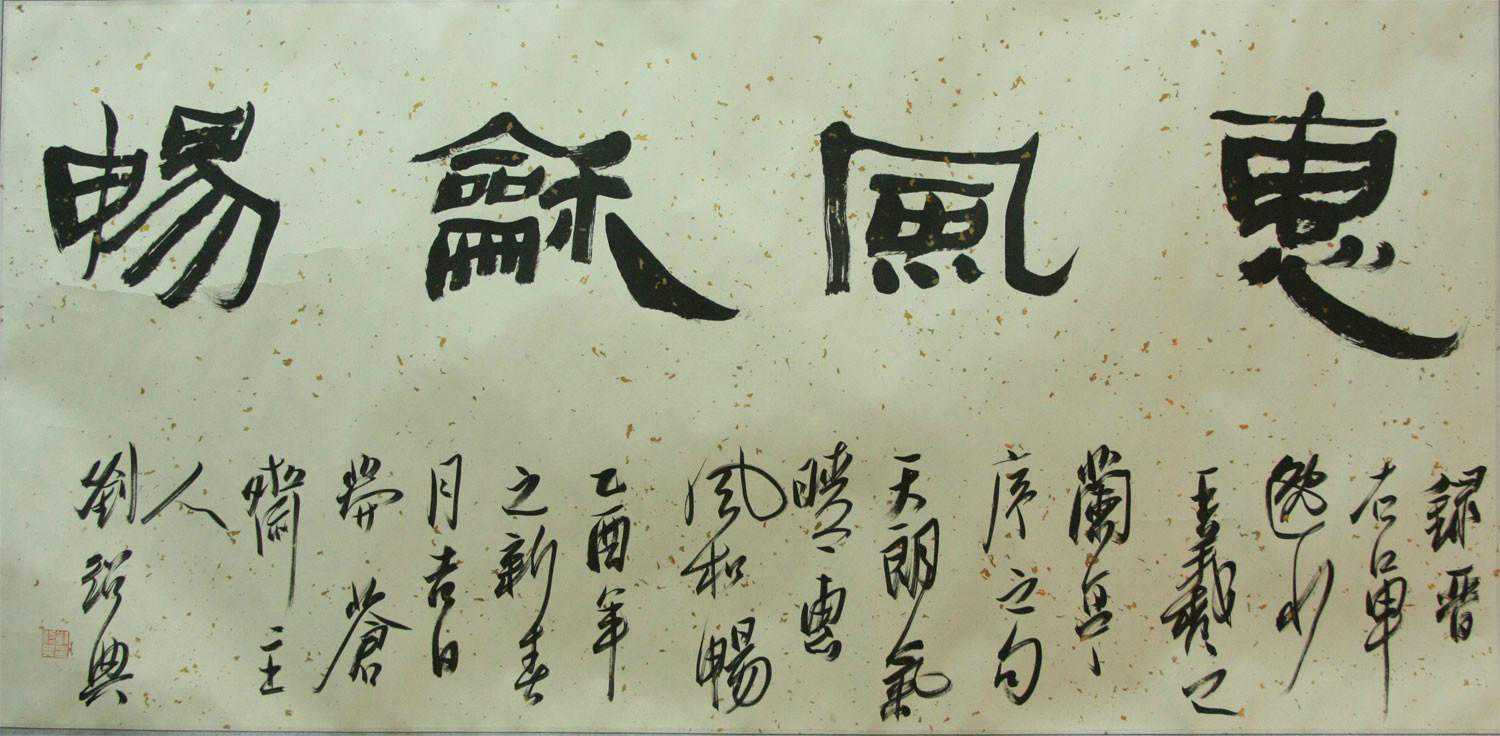 惠風龢暢
録晉
右軍
逸少
王羲之
蘭亭
序之句
天朗氣
晴惠
風和暢
乙酉年
之新春
月吉日
莽蒼
齋主
人
劉紹典